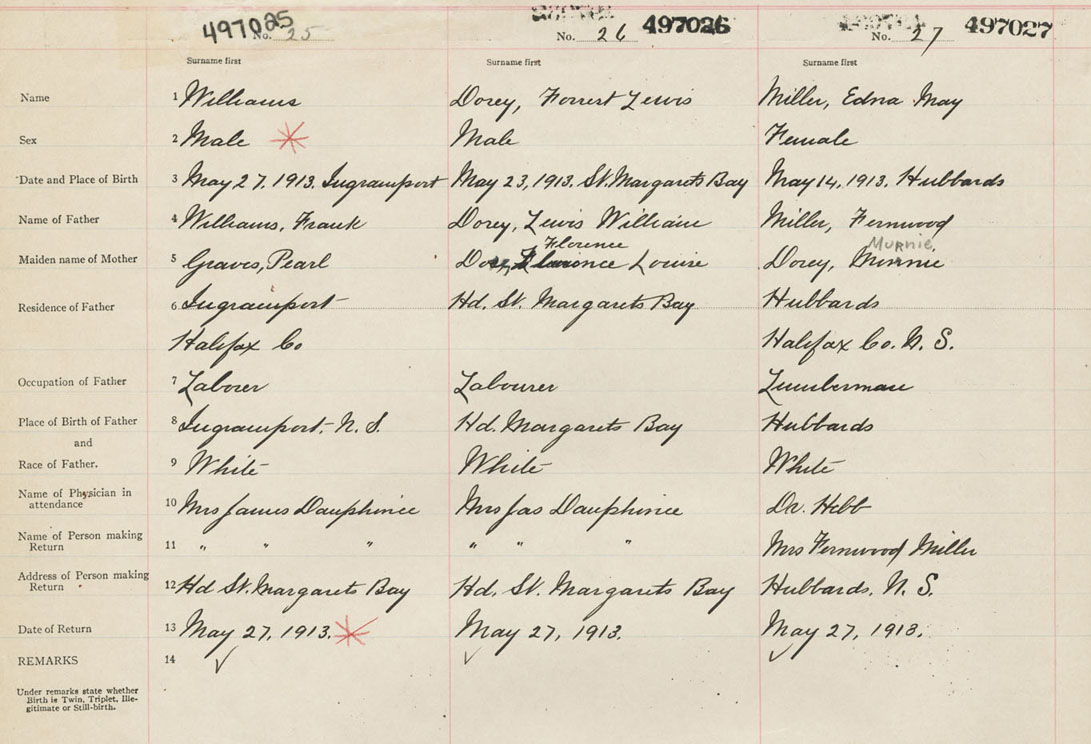 497025 No. 25 No. 26 497026 No. 27 497027
Surname first Surname first Surname first
Name 1 Williams Dorey, Forrest Lewis Miller, Edna May
Sex 2 Male Male Female
Date and Place of Birth 3 May 27, 1913. Ingramport May 23, 1913. St. Margarets Bay May 14, 1913. Hubbards
Name of Father 4 Williams, Frank Dorey, Lewis William Miller, Fernwood
Florence Murnie
Maiden name of Mother 5 Graves, Pearl Louise Dorey, Murnie
Residence of Father 6 Ingramport Hd. St. Margarets Bay Hubbards
Halifax Co Halifax Co. N. S.
Occupation of Father 7 Laborer Labourer Lumberman
Place of Birth of Father 8 Ingramport, N. S. Hd. Margarets Bay Hubbards
and
Race of Father. 9 White White White
Name of Physician in
attendance 10 Mrs James Dauphinee Mrs Jas Dauphinee Dr. Hebb
Name of Person making
Return 11 " " " " " " Mrs Fernwood Miller
Address of Person making
Return 12 Hd St. Margarets Bay Hd. St. Margarets Bay Hubbards, N. S.
Date of Return 13 May 27, 1913. May 27, 1913. May 27, 1913.
REMARKS 14 ✓ ✓ ✓
Under remarks state whether
Birth is Twin, Triplet, Ille-
gitimate or Still-birth.